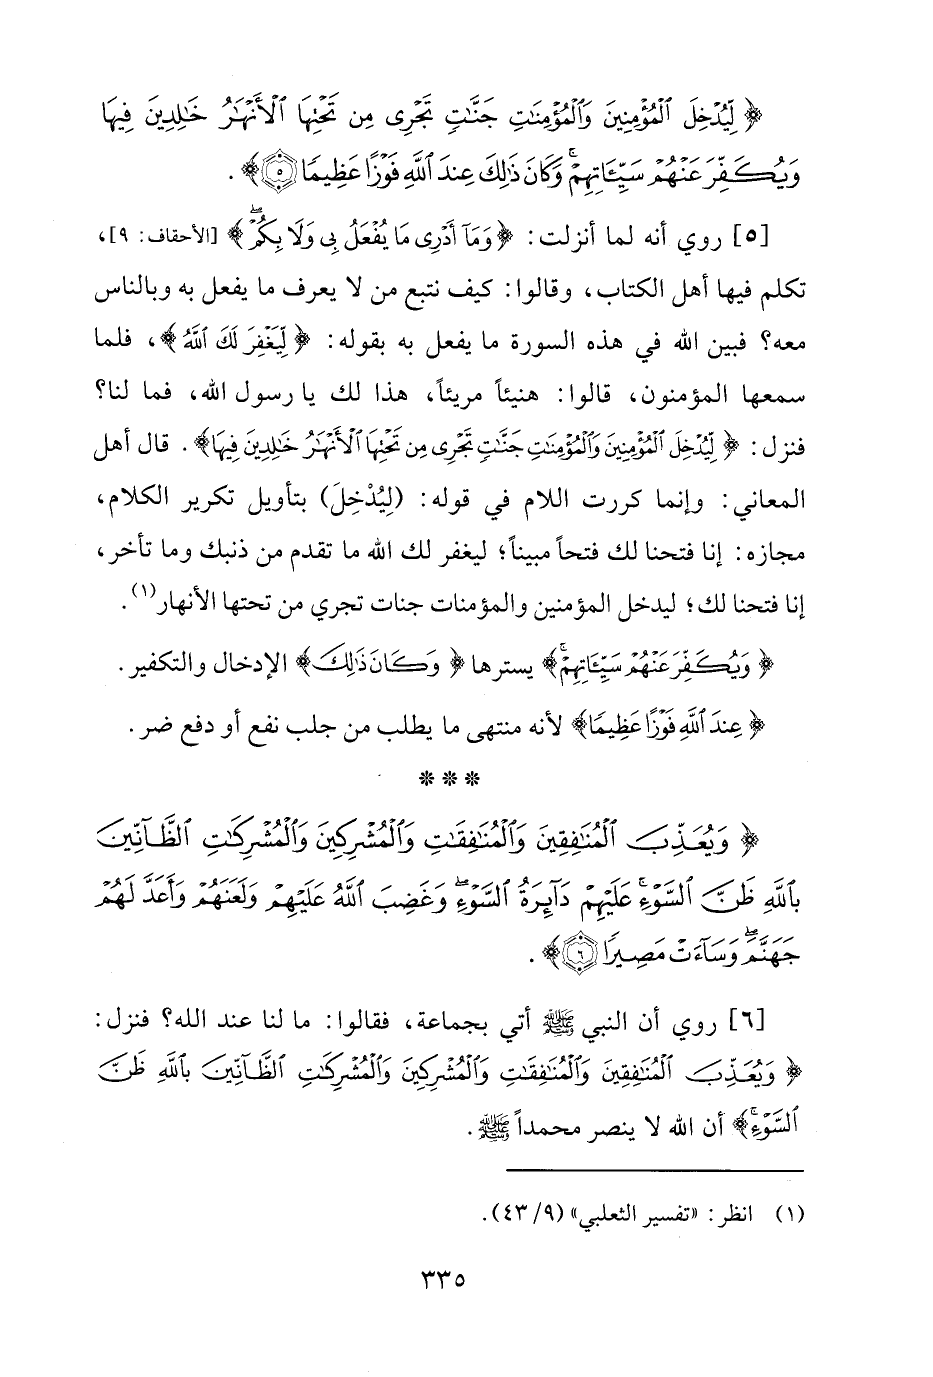 ﴿ لِّيُدْخِلَ ٱلْمُؤْمِنِينَ وَٱلْمُؤْمِنَٰتِ جَنَّٰتٍ تَجْرِى مِن تَحْتِهَا ٱلْأَنْهَٰرُ خَٰلِدِينَ فِيهَا
وَيُكَفِّرَ عَنْهُمْ سَيِّـَٔاتِهِمْ ۚ وَكَانَ ذَٰلِكَ عِندَ ٱللَّهِ فَوْزًا عَظِيمًا ۝٥ ﴾ .
[٥] روي أنه لما أنزلت: ﴿ وَمَآ أَدْرِى مَا يُفْعَلُ بِى وَلَا بِكُمْ ۖ ﴾ [الأحقاف: ٩]،
تكلم فيها أهل الكتاب، وقالوا: كيف نتبع من لا يعرف ما يفعل به وبالناس
معه؟ فبين الله في هذه السورة ما يفعل به بقوله: ﴿ لِّيَغْفِرَ لَكَ ٱللَّهُ ﴾، فلما
سمعها المؤمنون، قالوا: هنيئاً مريئاً، هذا لك يا رسول الله، فما لنا؟
فنزل: ﴿ لِّيُدْخِلَ ٱلْمُؤْمِنِينَ وَٱلْمُؤْمِنَٰتِ جَنَّٰتٍ تَجْرِى مِن تَحْتِهَا ٱلْأَنْهَٰرُ خَٰلِدِينَ فِيهَا ﴾ . قال أهل
المعاني: وإنما كررت اللام في قوله: (لِيُدْخِلَ) بتأويل تكرير الكلام،
مجازه: إنا فتحنا لك فتحاً مبيناً؛ ليغفر لك الله ما تقدم من ذنبك وما تأخر،
إنا فتحنا لك؛ ليدخل المؤمنين والمؤمنات جنات تجري من تحتها الأنهار(١).
﴿ وَيُكَفِّرَ عَنْهُمْ سَيِّـَٔاتِهِمْ ۚ ﴾ يسترها ﴿ وَكَانَ ذَٰلِكَ ﴾ الإدخال والتكفير.
﴿ عِندَ ٱللَّهِ فَوْزًا عَظِيمًا ﴾ لأنه منتهى ما يطلب من جلب نفع أو دفع ضر.
* * *
﴿ وَيُعَذِّبَ ٱلْمُنَٰفِقِينَ وَٱلْمُنَٰفِقَٰتِ وَٱلْمُشْرِكِينَ وَٱلْمُشْرِكَٰتِ ٱلظَّآنِّينَ
بِٱللَّهِ ظَنَّ ٱلسَّوْءِ ۚ عَلَيْهِمْ دَآئِرَةُ ٱلسَّوْءِ ۖ وَغَضِبَ ٱللَّهُ عَلَيْهِمْ وَلَعَنَهُمْ وَأَعَدَّ لَهُمْ
جَهَنَّمَ ۖ وَسَآءَتْ مَصِيرًا ۝٦ ﴾ .
[٦] روي أن النبي ﷺ أتي بجماعة، فقالوا: ما لنا عند الله؟ فنزل:
﴿ وَيُعَذِّبَ ٱلْمُنَٰفِقِينَ وَٱلْمُنَٰفِقَٰتِ وَٱلْمُشْرِكِينَ وَٱلْمُشْرِكَٰتِ ٱلظَّآنِّينَ بِٱللَّهِ ظَنَّ
ٱلسَّوْءِ ۚ ﴾ أن الله لا ينصر محمداً ﷺ.
(١) انظر: «تفسير الثعلبي» (٩/ ٤٣).
٣٣٥